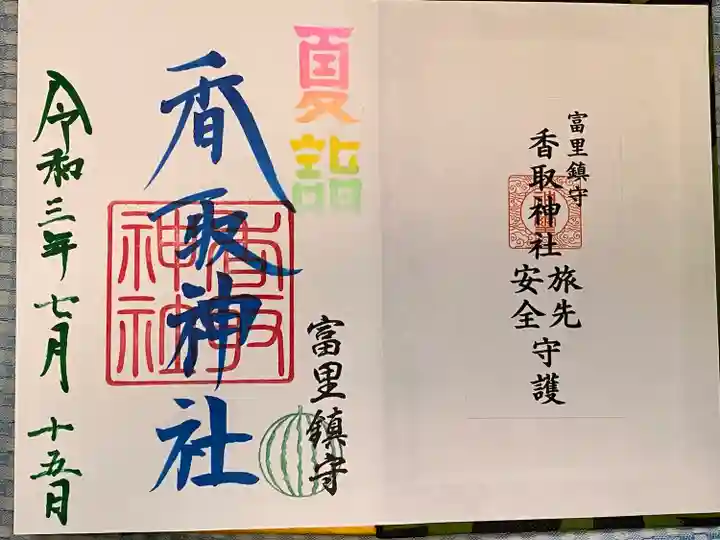 富里鎮守
香取神社
旅先
安全
守護
夏詣
富里鎮守
香取神社
香取
神社
令和三年七月十五日